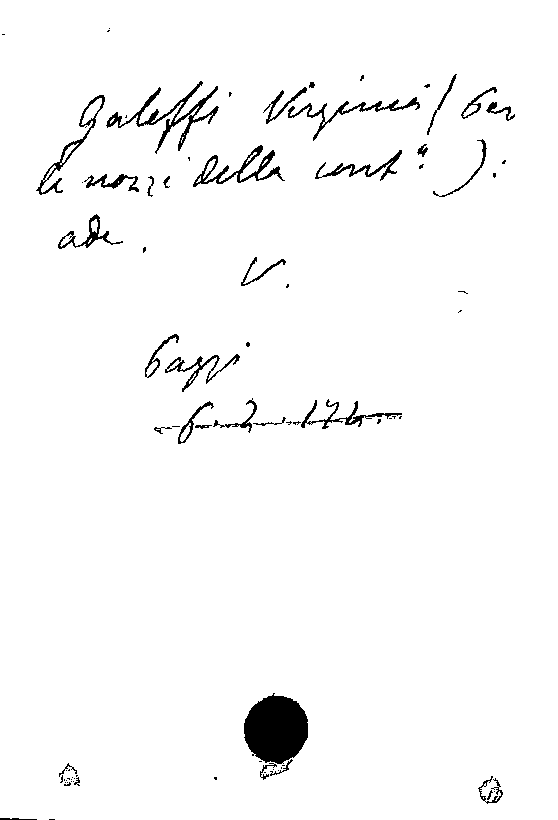 Galeffi Virginia (Per
le nozze della cont.ª ):
ode.
V.
Gaggi
6. 2. 174.